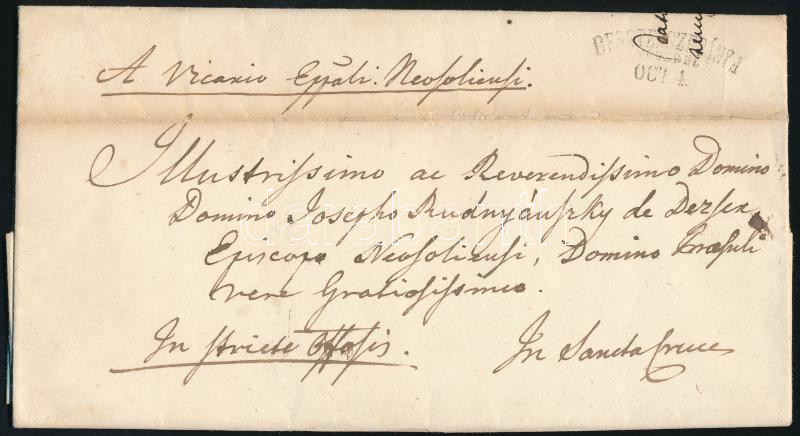 BESZTERCZEBÁNYA
OCT. 4.
A Vicario Eppali. Neosoliensi.
Illustrissimo ac Reverendissimo Domino,
Domino Josepho Rudnyánszky de Dezser
Episcopo Neosoliensi, Domino Præsuli
vere Gratiosissimo.
In stricte Offosis.
In Sancta Cruce